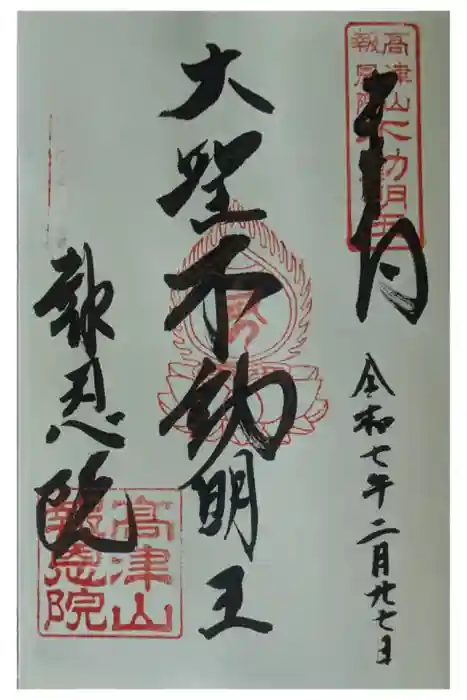 奉拝
高津山不動明王
報恩院
令和七年二月廿七日
大聖不動明王
報恩院
高津山
報恩院